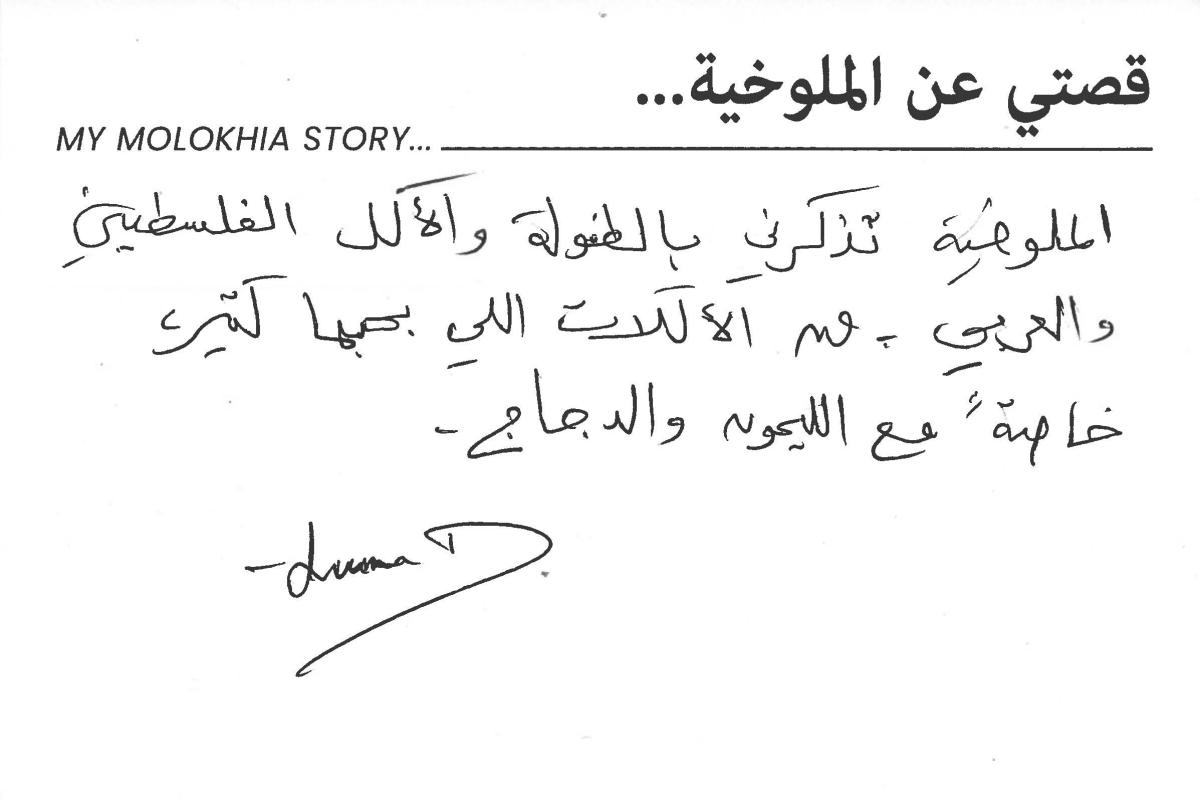 قصتي عن الملوخية...
MY MOLOKHIA STORY...
الملوخية تذكرني بالطفولة والأكل الفلسطيني
والعربي - من الأكلات اللي بحبها كتير،
خاصةً مع الليمون والدجاج -
- Luma D